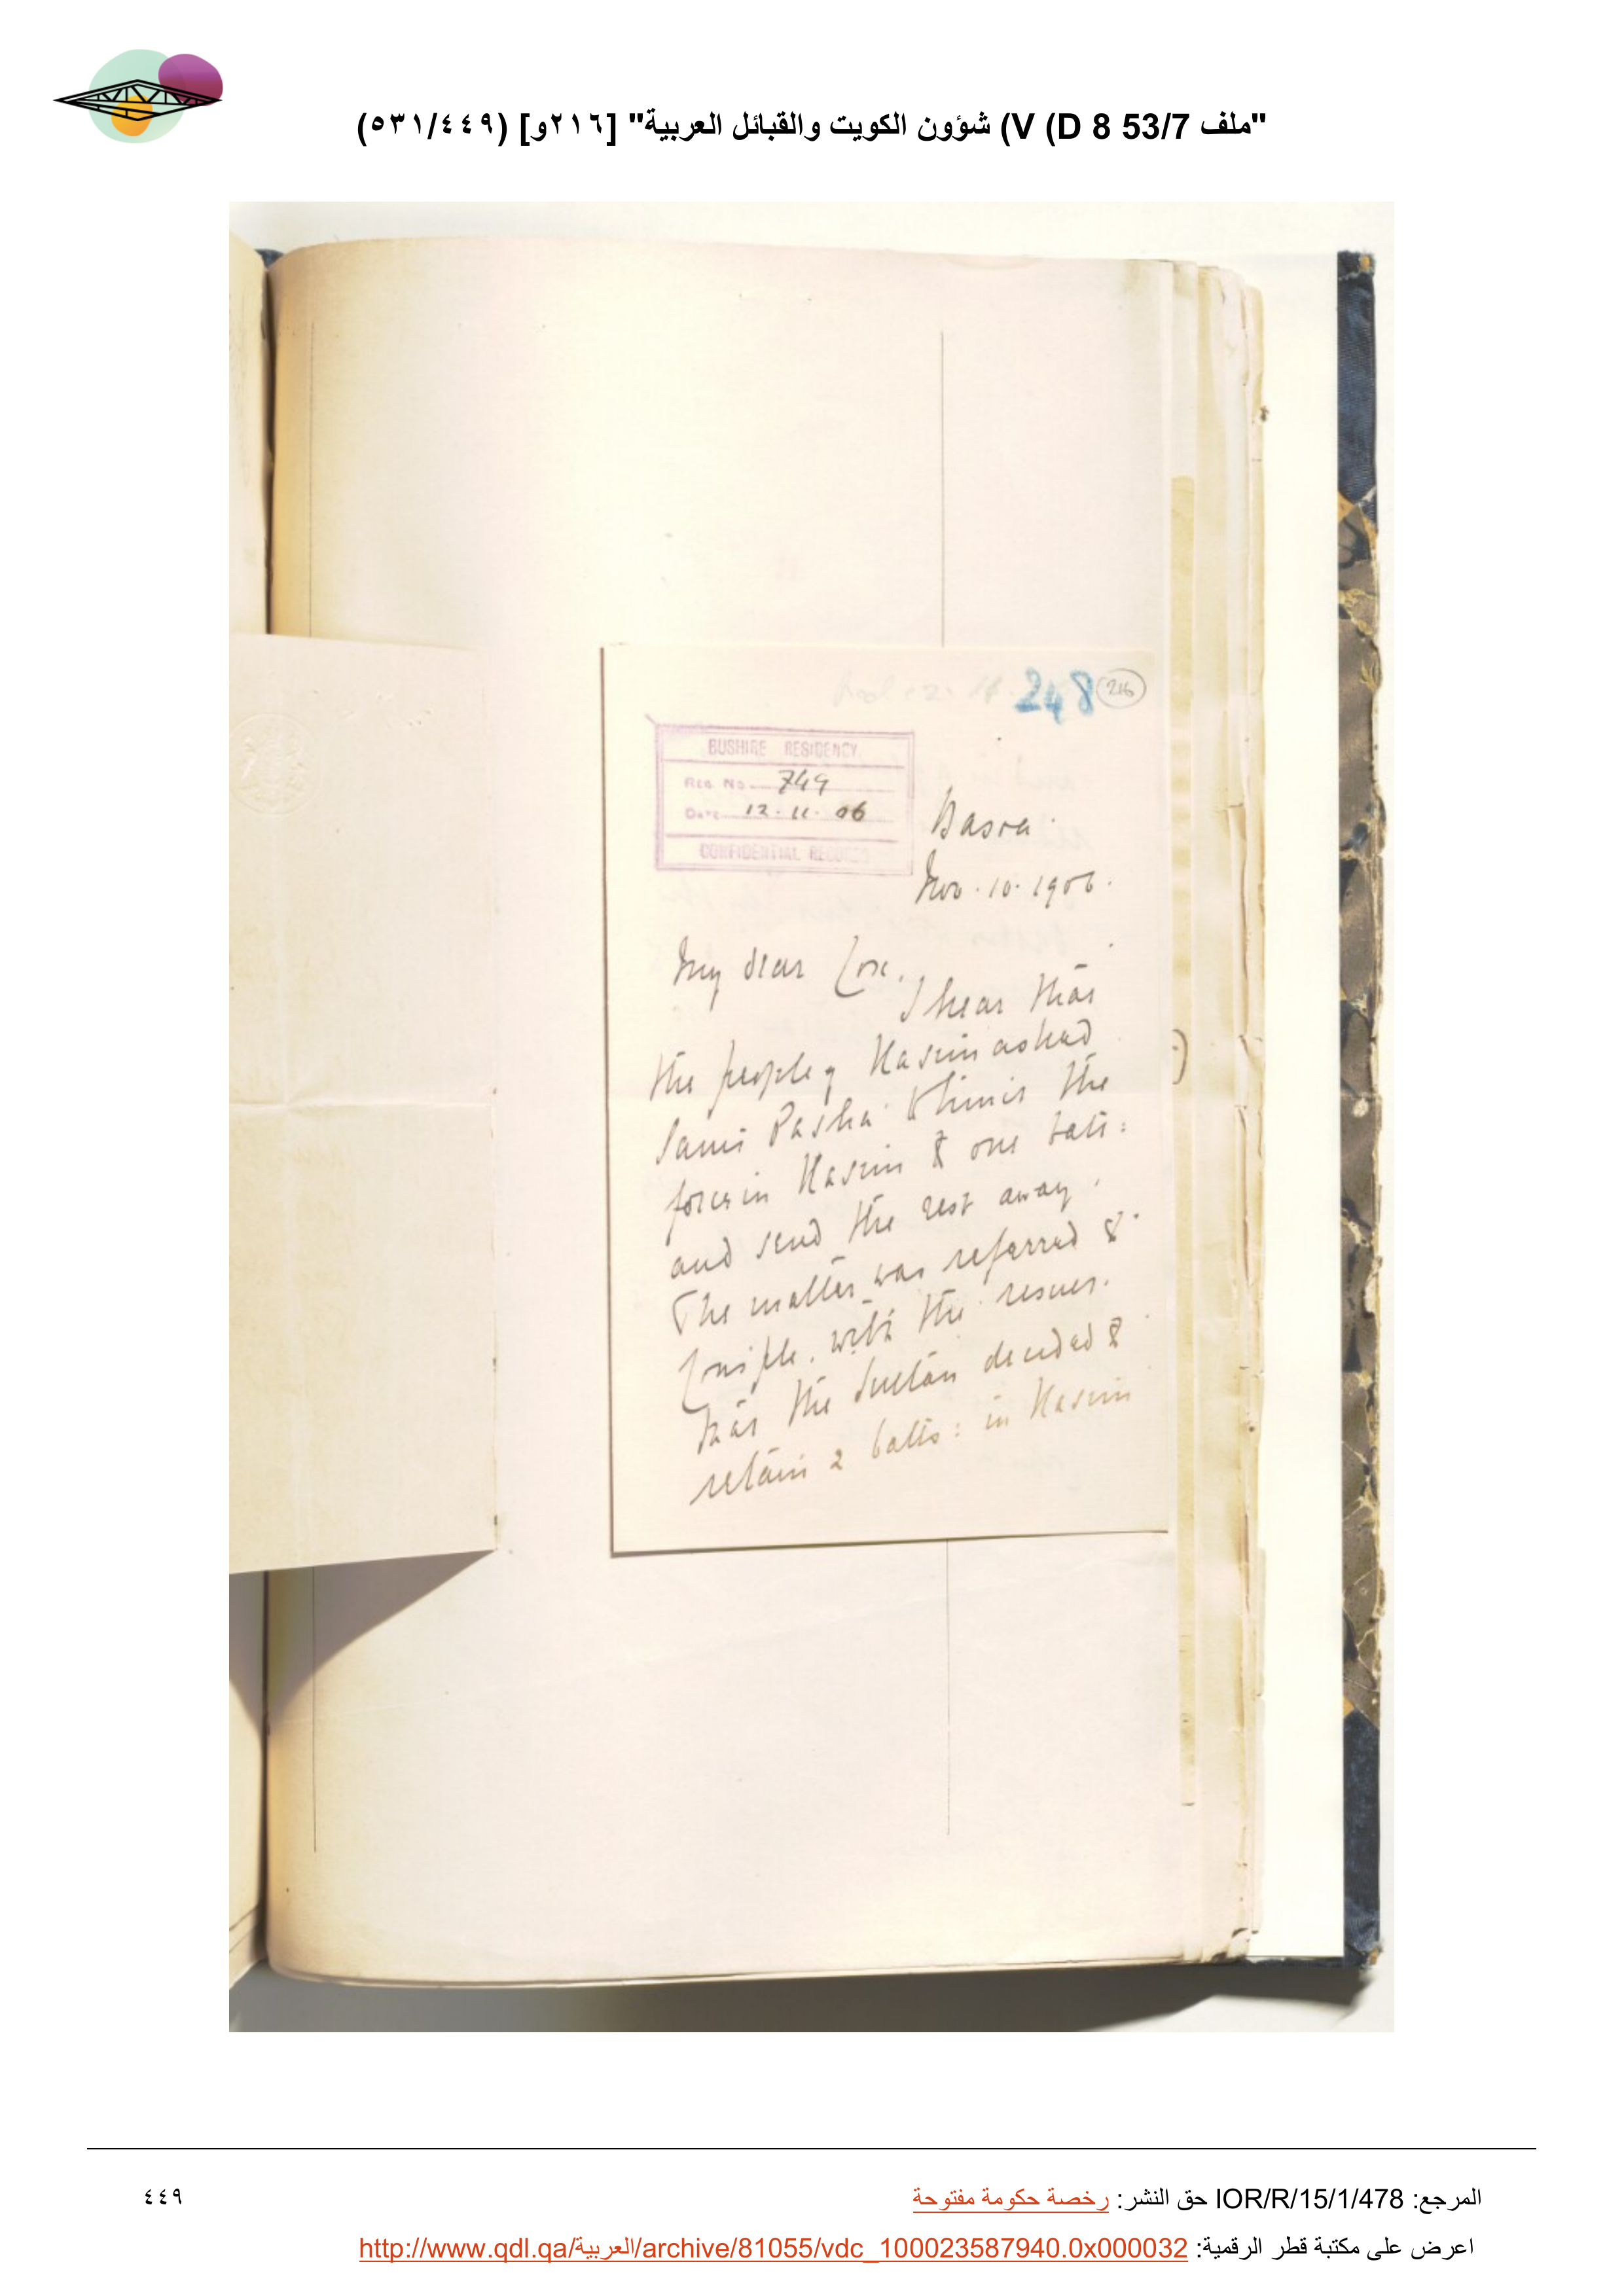 "ملف 53/7 V (D 8) شؤون الكويت والقبائل العربية" [٢١٦و] (٥٣١/٤٤٩)
248 216
BUSHIRE RESIDENCY.
REG. No. 749
DATE 12.11.06
CONFIDENTIAL RECORDS
Basra.
Nov. 10. 1906.
My dear Cox.
I hear that
the people of Kasim asked
Sami Pasha to limit the
force in Kasim to one batt:
and send the rest away.
The matter was referred to
Consple. with the result
that the Sultan decided to
retain 2 batts: in Kasim
المرجع: IOR/R/15/1/478 حق النشر: رخصة حكومة مفتوحة
٤٤٩
اعرض على مكتبة قطر الرقمية: http://www.qdl.qa/العربية/archive/81055/vdc_100023587940.0x000032